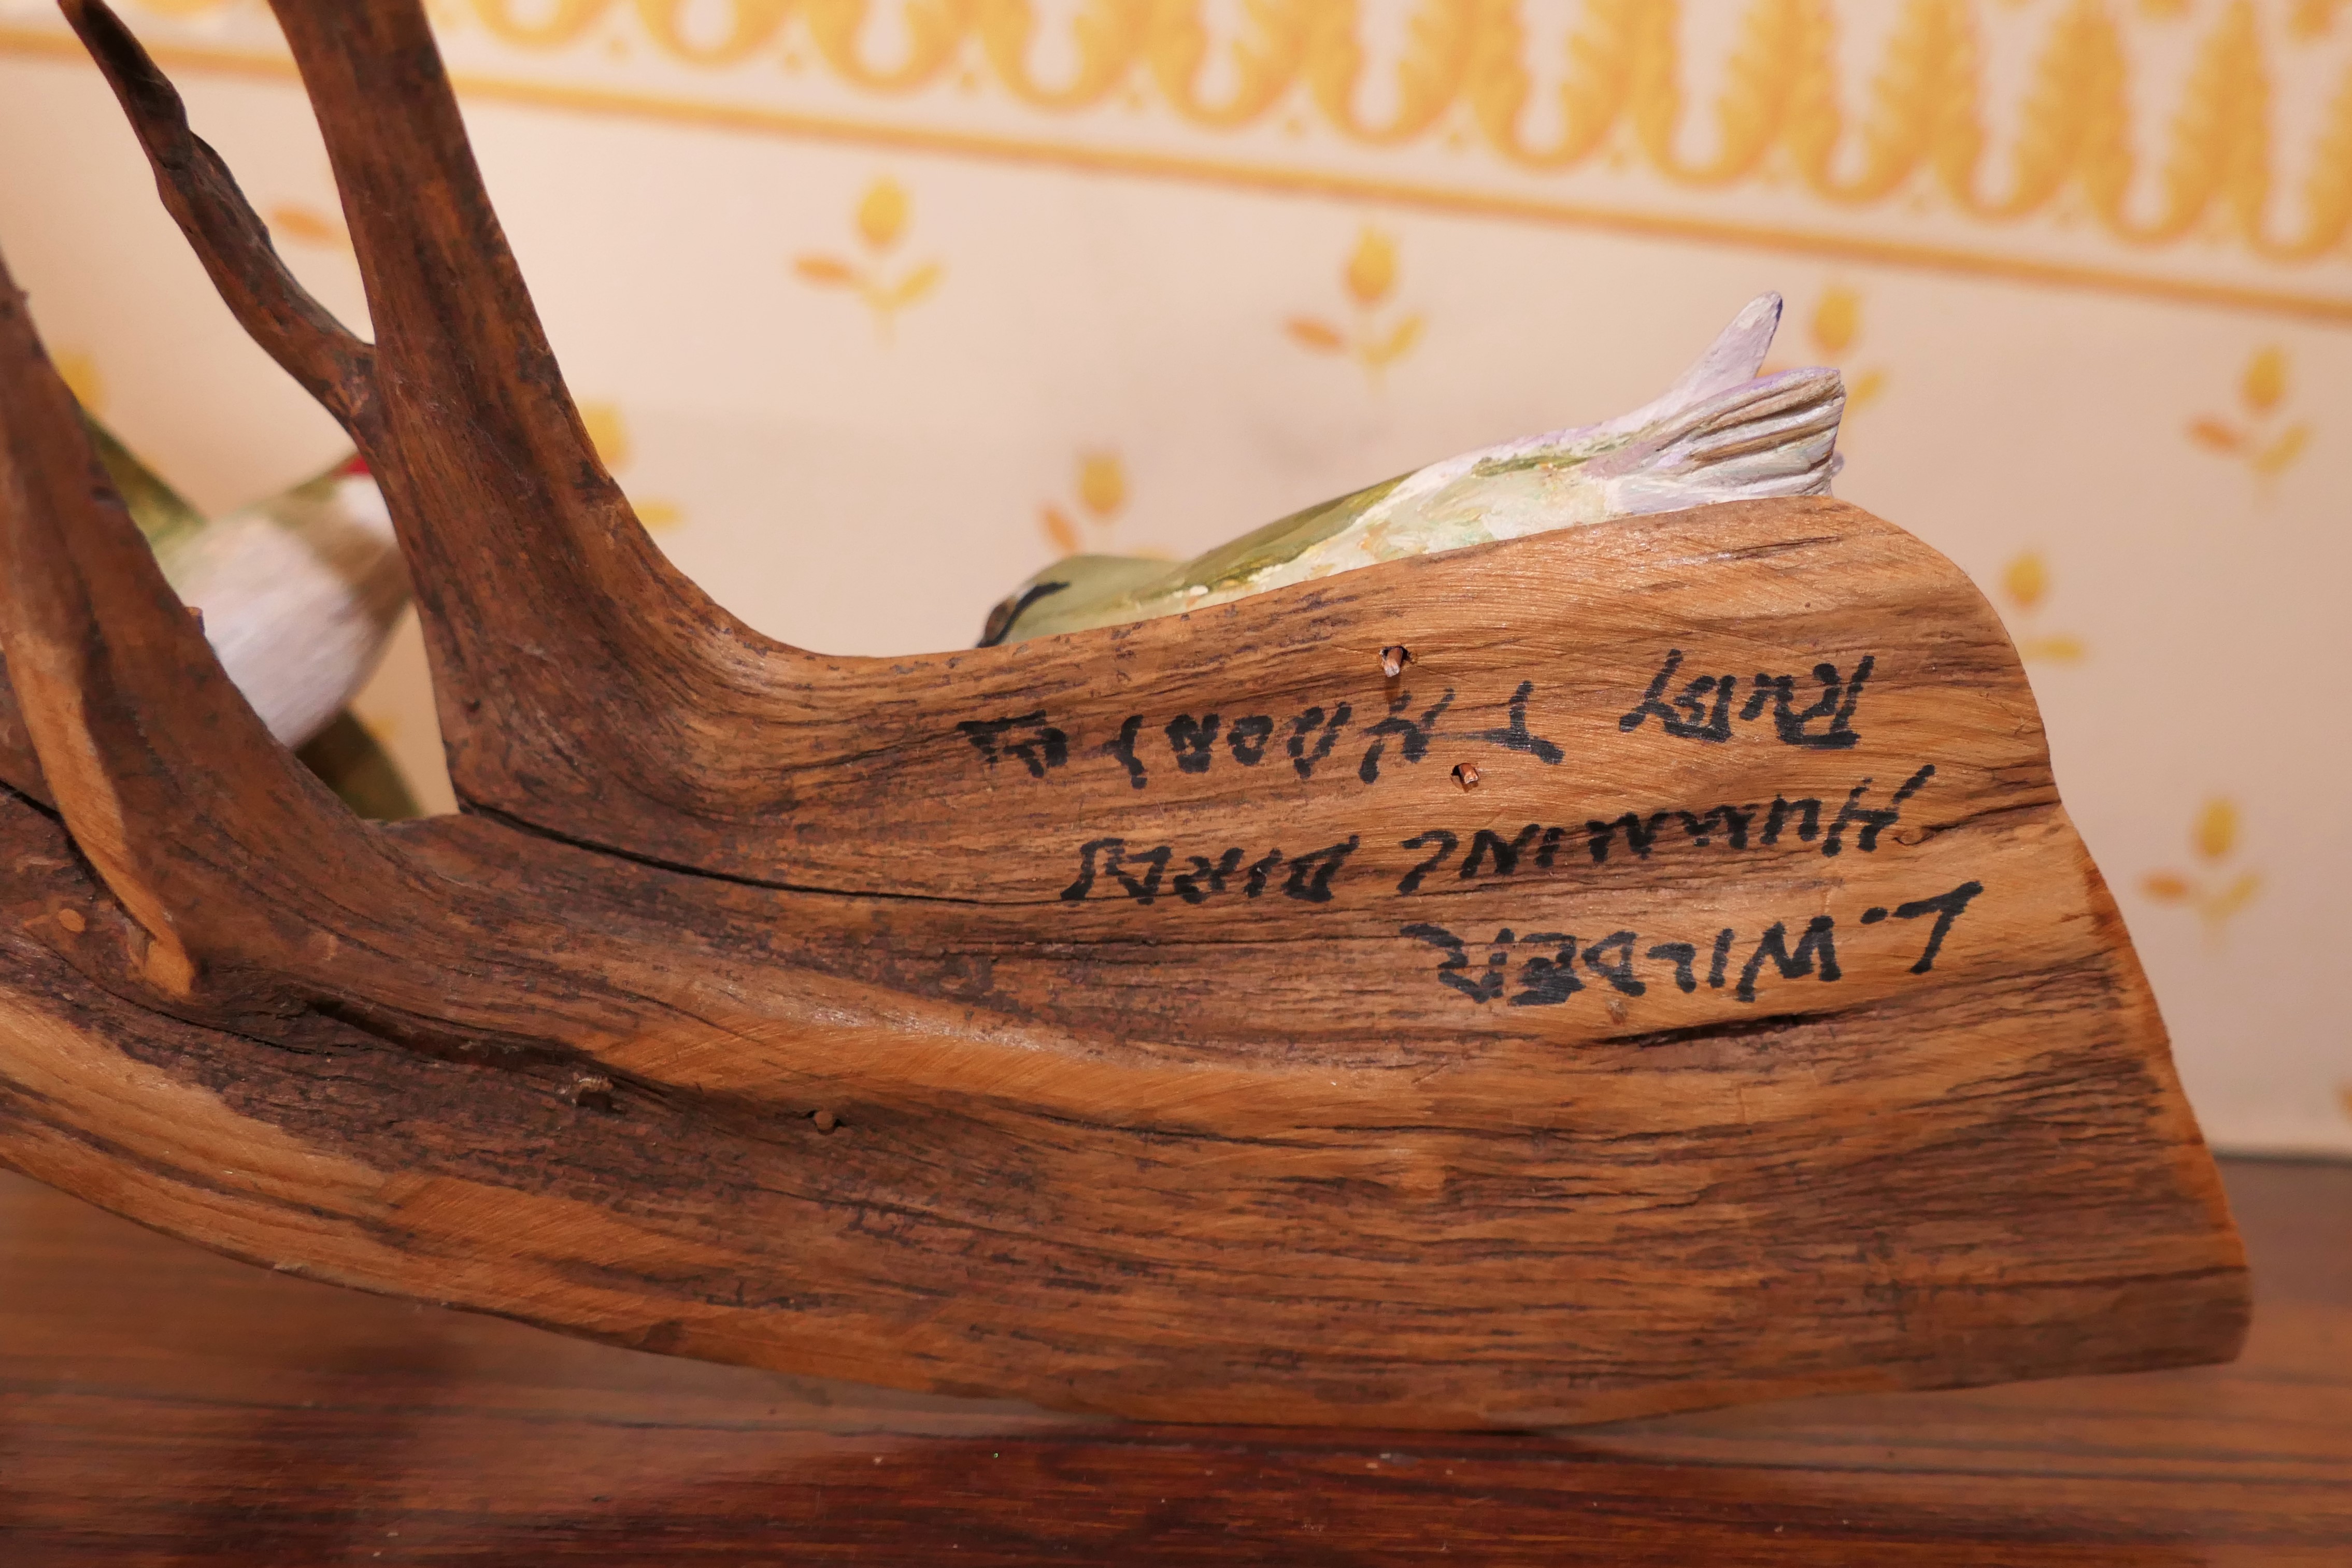 L. WILDER
HUMMING BIRDS
RUBY THROATED